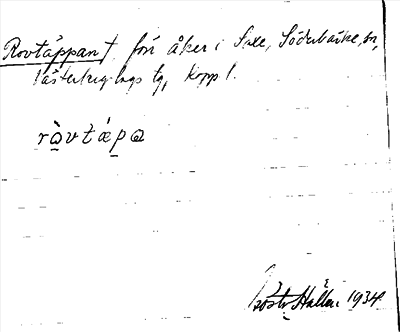 Rovtäppan † förr åker i Saxe, Söderbärke sn,
Västerbergslags tg, Koppl.
ròvtǽpa
Gösta Hallén 1934